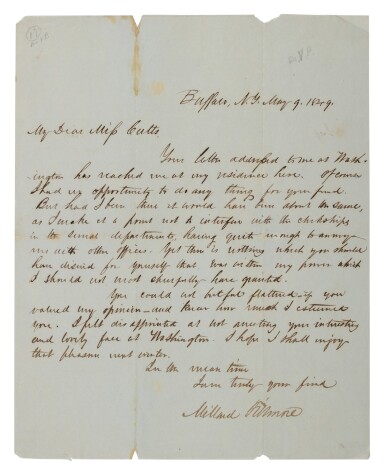 Buffalo, N.Y. May 9. 1849.
My Dear Miss Cutts,
Your letter addressed to me at Wash-
ington has reached me at my residence here. Of course
I had no opportunity to do any thing for your friend.
But had I been there it would have been about the same,
as I make it a point not to interfere with the clerkships
in the several departments, having quite enough to annoy
me with other offices. Yet there is nothing which you should
have desired for yourself that was within my power which
I should not most cheerfully have granted.
You could not but feel flattered if you
valued my opinion—and knew how much I esteemed
you. I felt disappointed at not meeting your interesting
and lovely face at Washington. I hope I shall enjoy
that pleasure next winter.
In the mean time
I am truly your friend
Millard Fillmore